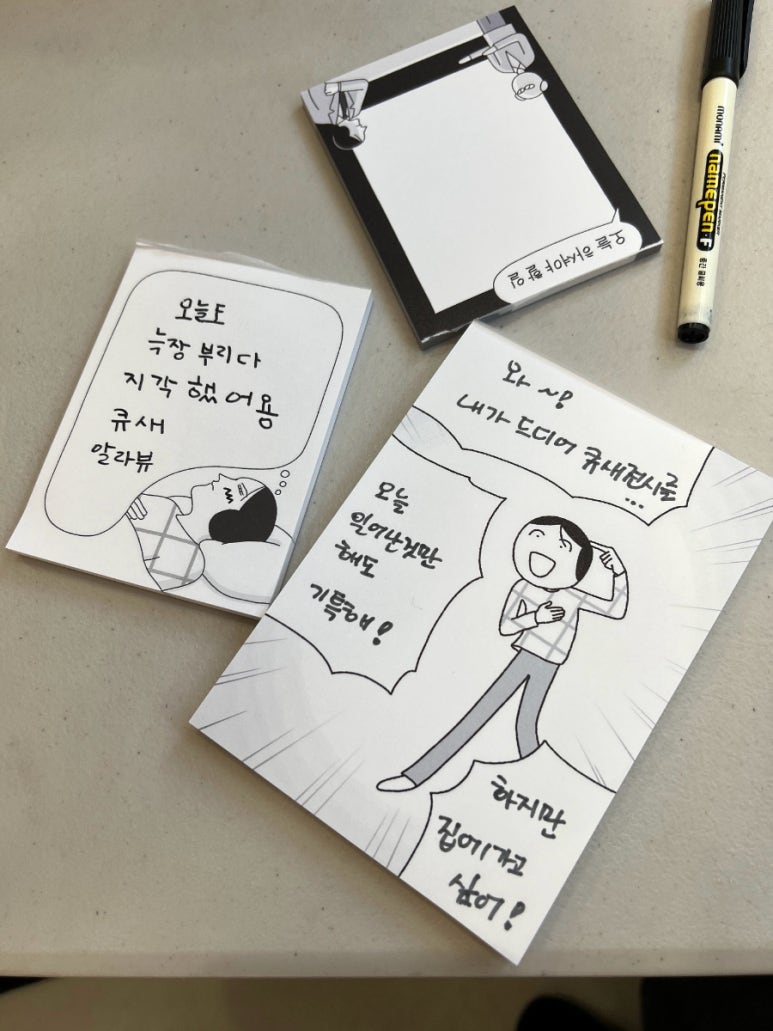 오늘 하셔야 할 일
monami
namepen·F
오늘도
늑장 부리다
지각 했어용
큐새
알라뷰
와~!
내가 드디어 큐새전시를
...
오늘
일어난것만
해도
기특해!
하지만
집에가고
싶어!